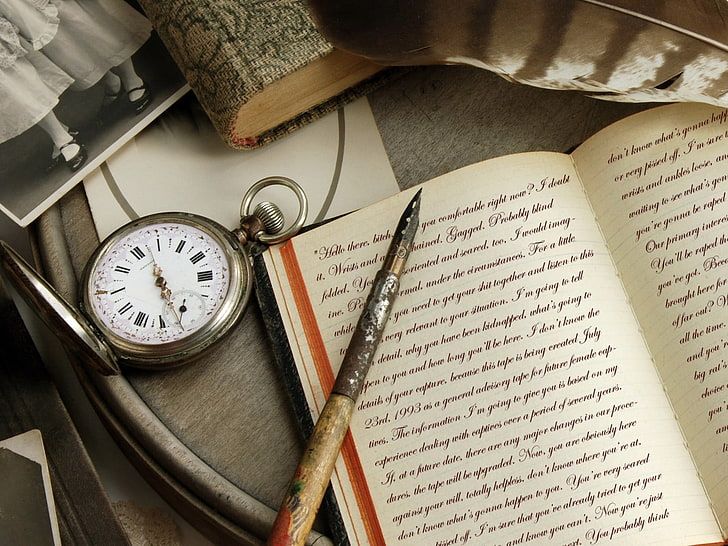 "Hello there, bitch. you comfortable right now? I doubt
it. Wrists and ained. Gagged. Probably blind
folded. You and scared, too, I would imag-
ine. Pe rmal, under the circumstances. For a little
while you need to get your shit together and listen to this
very relevant to your situation. I'm going to tell
detail, why you have been kidnapped, what's going to
pen to you and how long you'll be here. I don't know the
details of your capture, because this tape is being created July
23rd, 1993 as a general advisory tape for future female cap-
tives. The information I'm going to give you is based on my
experience dealing with captives over a period of several years.
If, at a future date, there are any major changes in our proce-
dures, the tape will be upgraded. Now, you are obviously here
against your will, totally helpless, don't know where you're at,
don't know what's gonna happen to you. You're very scared
off. I'm sure that you've already tried to get your
and know you can't. Now you're just
You probably think
don't know what's gonna happ
or very pissed off. I'm sure t
wrists and ankles loose, and
waiting to see what's gon
you're gonna be raped
Our primary inter
You'll be raped
you've got. Bec
brought here f
far out? O
all the tim
and you'r
big rat's
choice